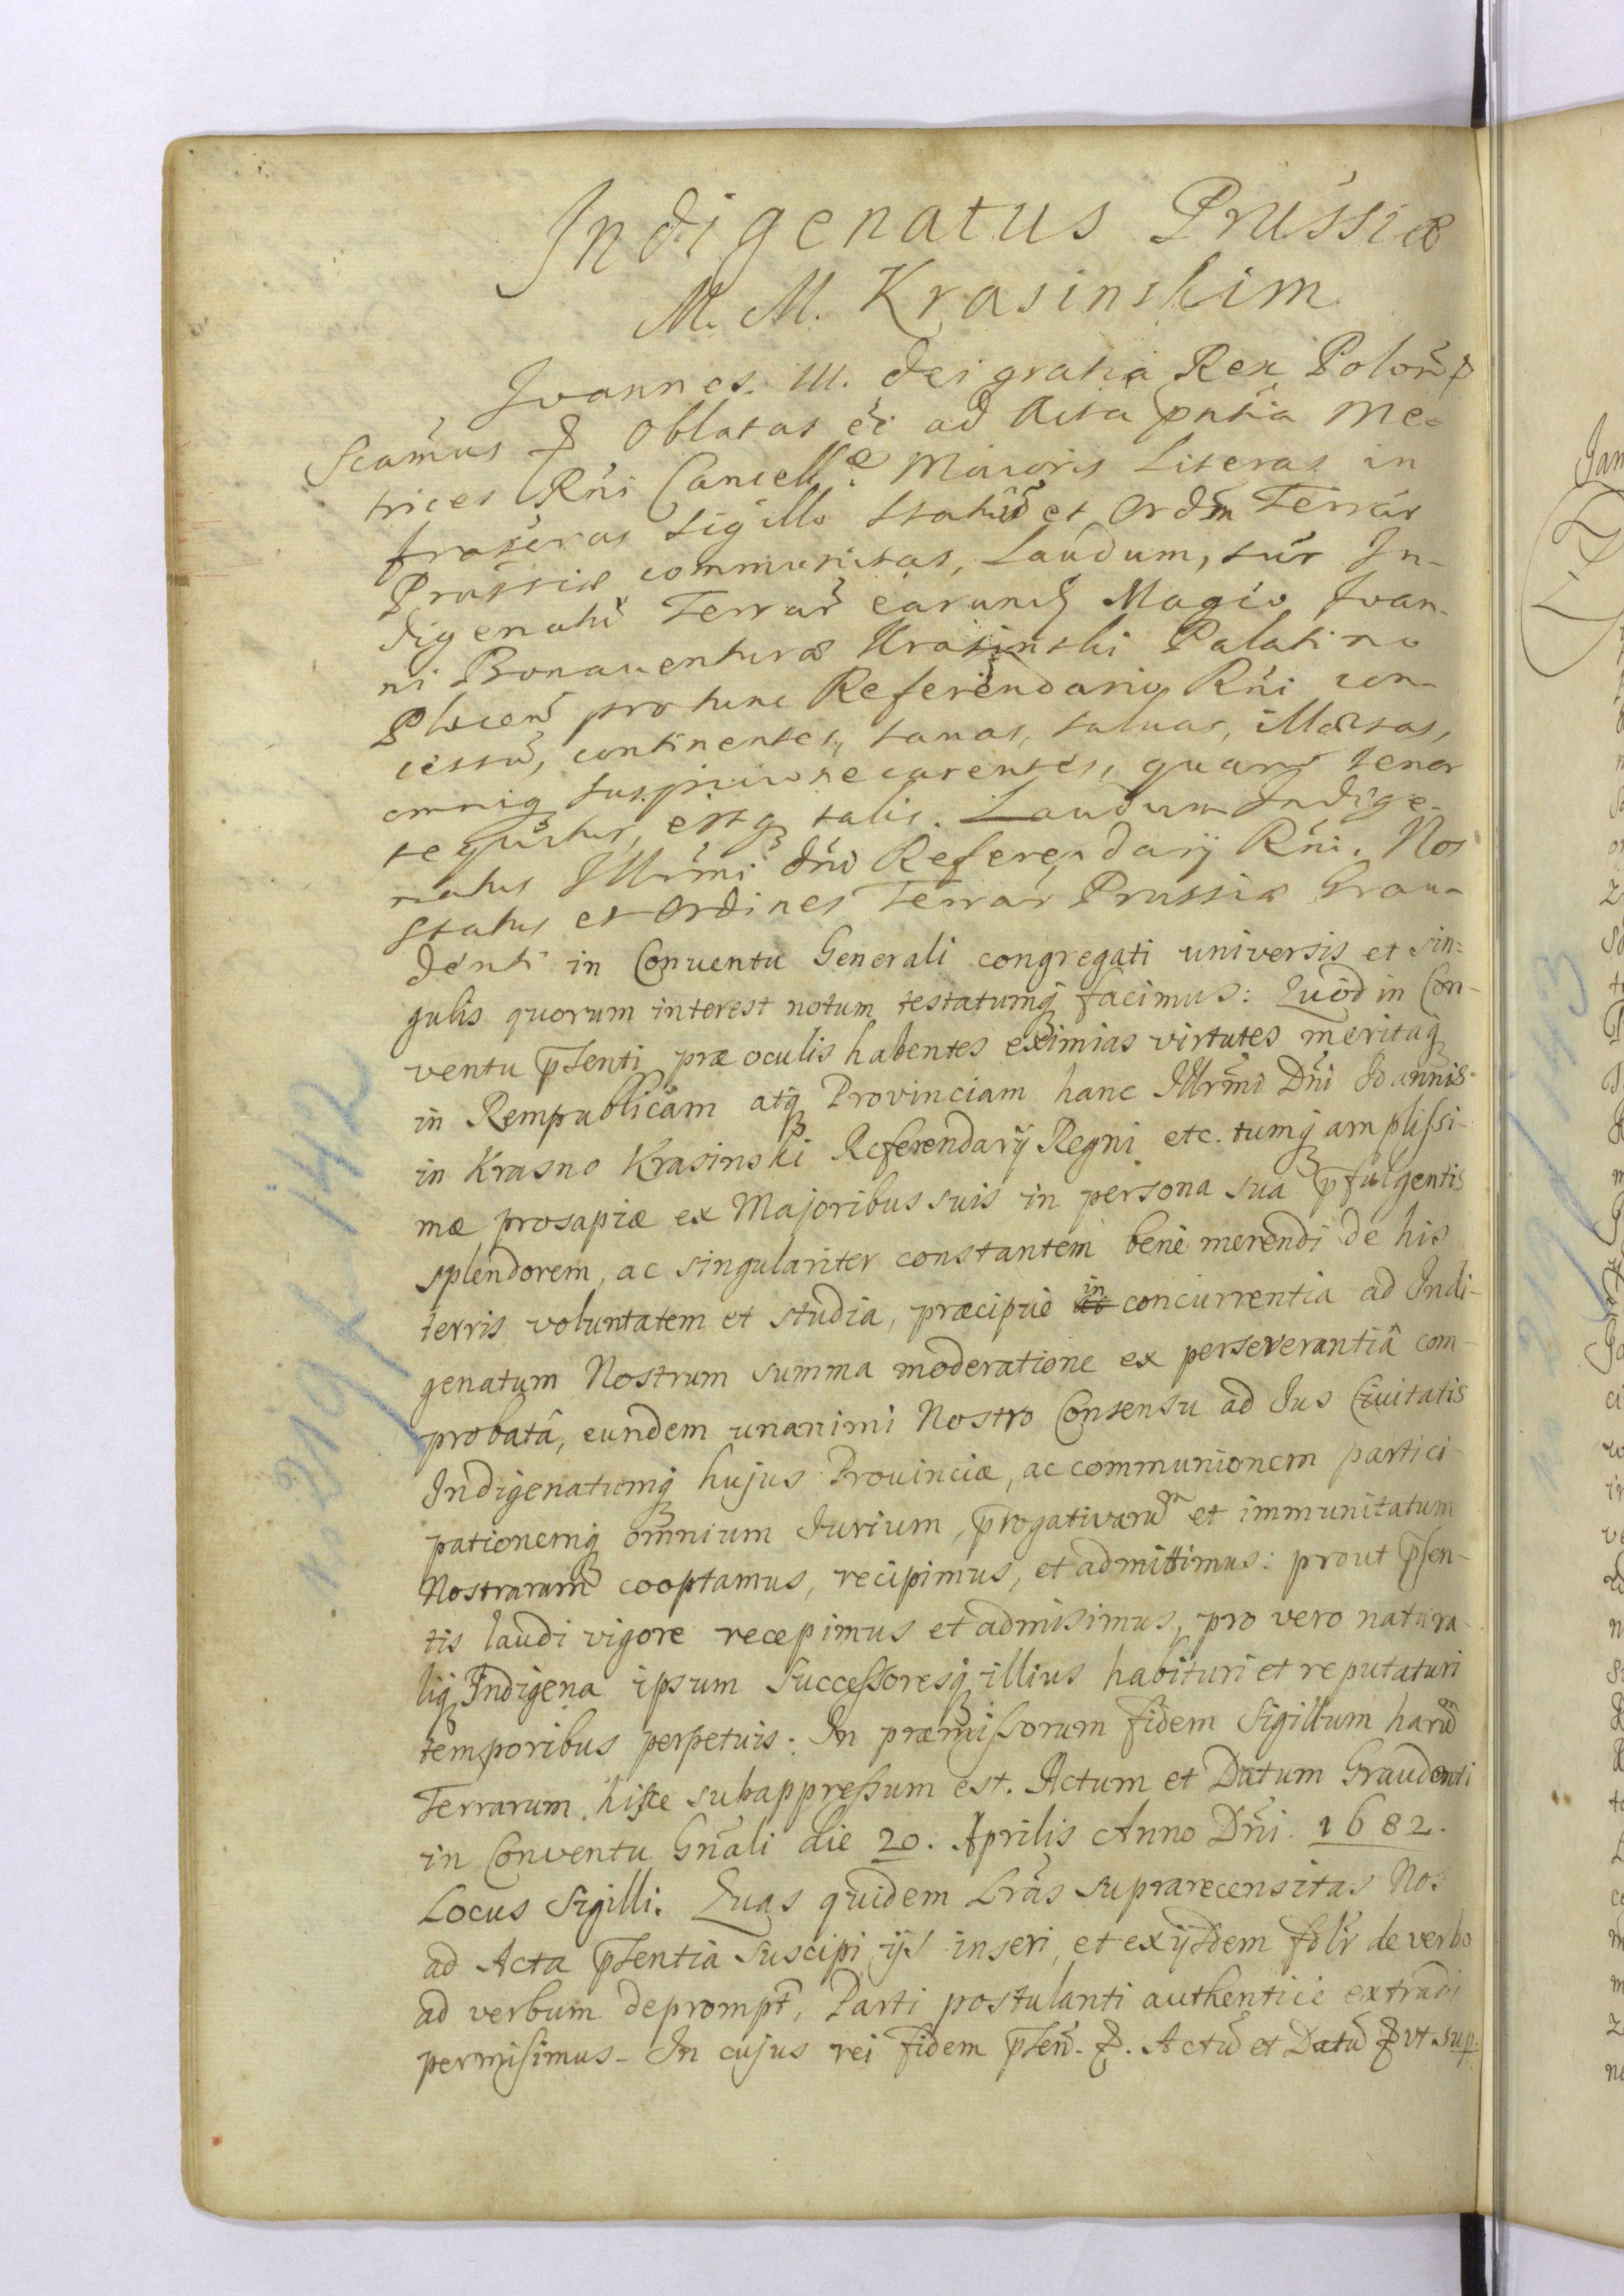 Indigenatus Prussiæ
M. M. Krasinskim
Joannes III. Dei gratia Rex Poloñ
Scãmus Oblatas ẽe ad Acta pñtia Me-
trices Rñi Cancellæ Maioris Literas in
frascras Sigillo Statuũ et Ordm Terrar
Prussiæ communitas, Laudum, sur In-
digenatũ Terrar earund Magco Joan-
ni Bonauenturæ Krasinski Palatino
Plocen pro tunc Referendario Rñi con-
cessũ, continentes, sanas, saluas, illæsas,
omniq suspicione carentes, quar tenor
sequitur, estq talis. Laudum Indige-
natus Illrmi Dñi Referendarij Rñi. Nos
Status et Ordines Terrar Prussiæ Grau-
denti in Conuentu Generali congregati universis et sin=
gulis quorum interest notum testatumq facimus: Quod in Con-
ventu p̃senti præ oculis habentes eximias virtutes meritaq
in Rempublicam atq Provinciam hanc Illrm̃i Dñi Joannis
in Krasno Krasinski Referendarij Regni etc. tumq amplissi-
mæ prosapiæ ex Majoribus suis in persona sua p̃fulgentis
splendorem, ac singulariter constantem bene merendi de his
terris voluntatem et studia, præcipue in concurrentia ad Indi-
genatum Nostrum summa moderatione ex perseverantiâ com-
probatâ, eundem unanimi Nostro Consensu ad Jus Ciuitatis
Indigenatumq hujus Prouinciæ, ac communionem partici-
pationemq omnium Jurium, p̃rogativarũ et immunitatum
Nostrarum cooptamus, recipimus, et admittimus: prout p̃sen-
tis laudi vigore recepimus et admisimus, pro vero natura-
liq Indigena ipsum Successoresq illius habituri et reputaturi
temporibus perpetuis. In præmissorum fidem Sigillum harũ
Terrarum hisce subappressum est. Actum et Datum Graudenti
in Conventu Gñali die 20. Aprilis Anno Dñi. 1682.
Locus Sigilli. Quas quidem Lrãs suprarecensitas Nos
ad Acta p̃sentia suscipi ijs inseri, et ex ijsdem fdlr de verbo
ad verbum deprompt, Parti postulanti authentice extradi
permisimus. In cujus rei fidem p̃señ. Actũ et Datũ ut sup.
no 219 k 142